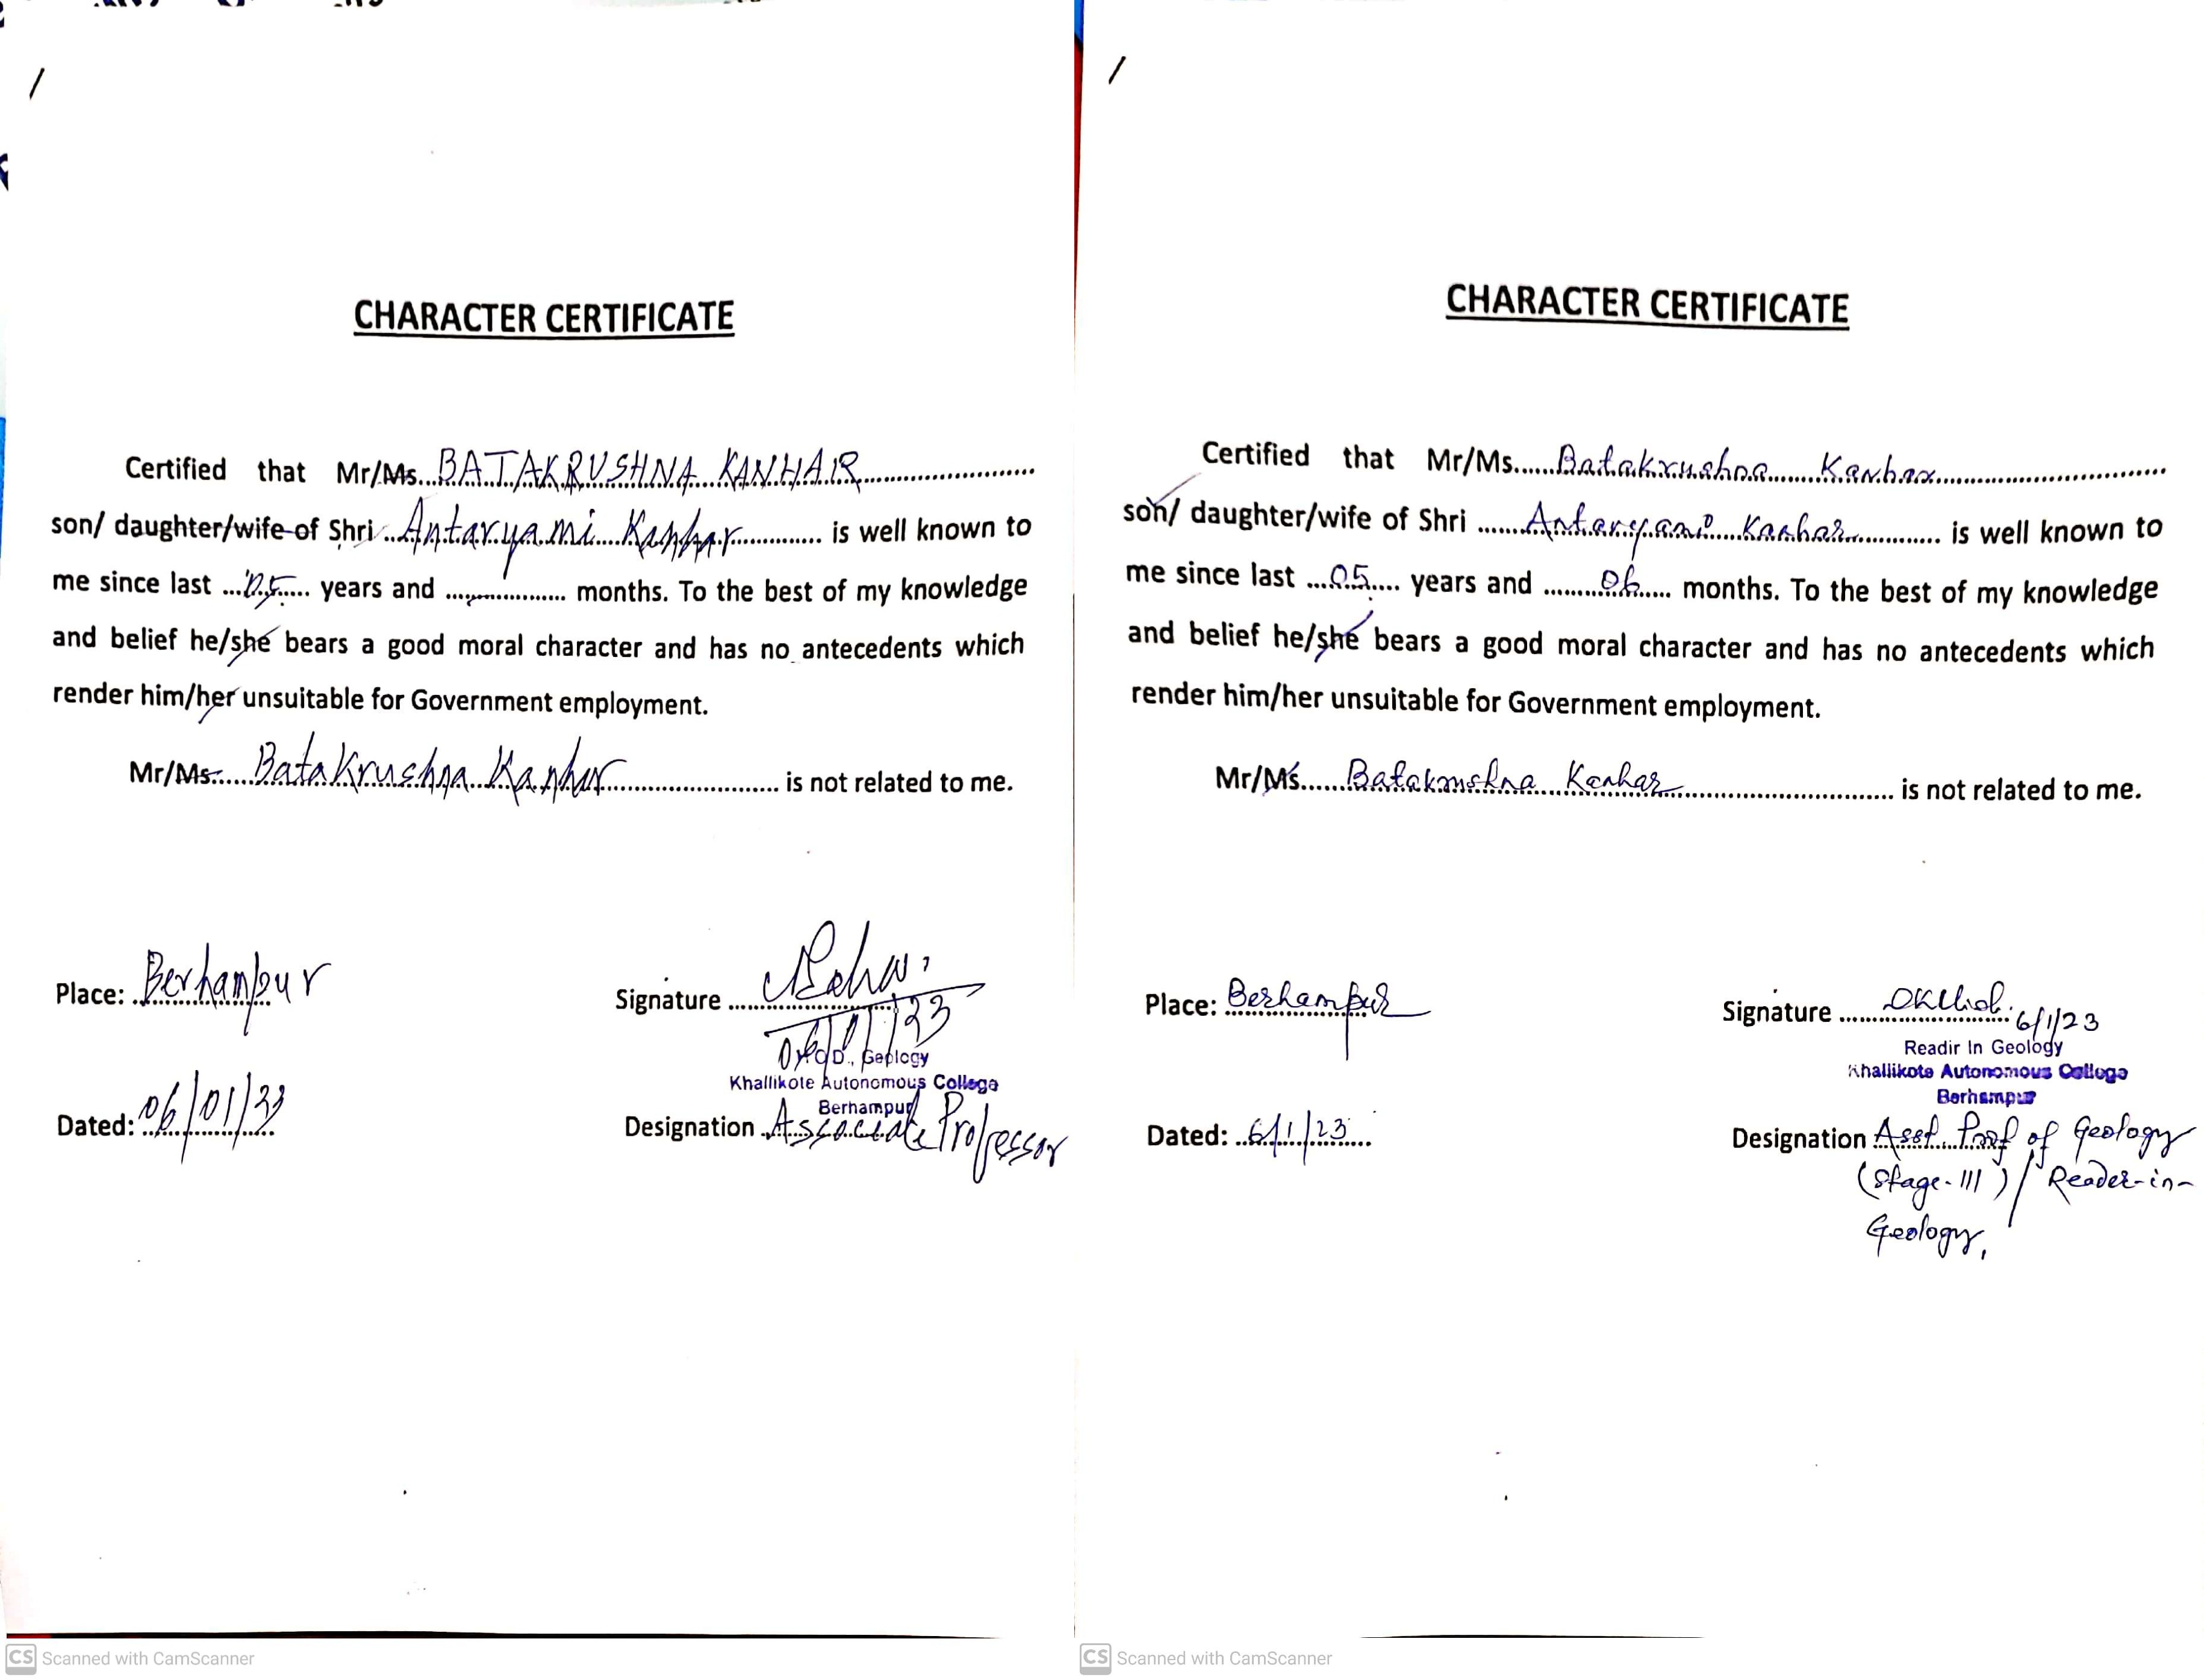 CHARACTER CERTIFICATE
Certified that Mr/Ms...BATAKRUSHNA KANHAR
son/ daughter/wife of Shri ...Antaryami Kanhar... is well known to
me since last ...05... years and ............ months. To the best of my knowledge
and belief he/she bears a good moral character and has no antecedents which
render him/her unsuitable for Government employment.
Mr/Ms......BataKrushna Kanhar............ is not related to me.
Place: Berhampur
Signature ............
06/01/23
H.O.D., Geology
Khallikote Autonomous College
Berhampur
Dated: 06/01/23
Designation Associate Professor
CS Scanned with CamScanner
CHARACTER CERTIFICATE
Certified that Mr/Ms......Batakrushna Kanhar............
son/ daughter/wife of Shri ......Antaryami Kanhar............ is well known to
me since last ...05.... years and .........06..... months. To the best of my knowledge
and belief he/she bears a good moral character and has no antecedents which
render him/her unsuitable for Government employment.
Mr/Ms......Batakrushna Kanhar............ is not related to me.
Place: Berhampur
Signature ............ 6/1/23
Readir In Geology
Khallikote Autonomous College
Berhampur
Dated: ..6/1/23....
Designation Asst. Prof of Geology
(Stage-III) / Reader-in-
Geology,
CS Scanned with CamScanner